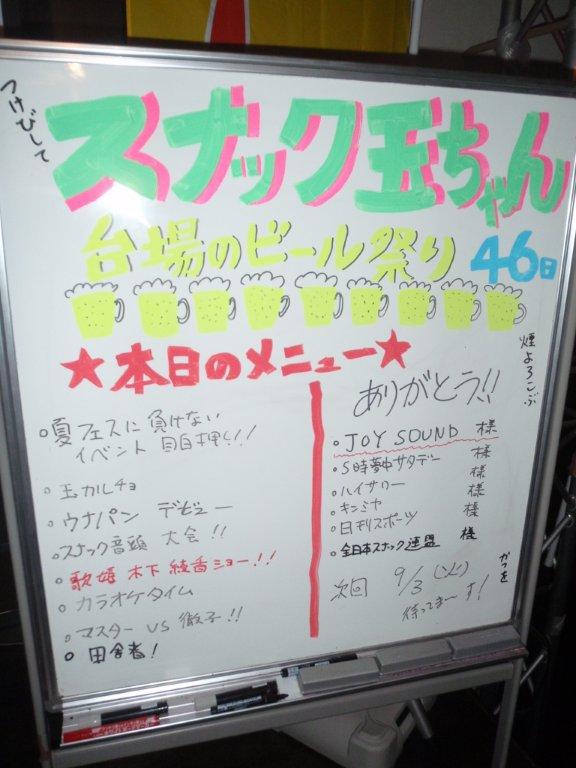 つけびして
スナック玉ちゃん
台場のビール祭り 46日
★本日のメニュー★
煙よろこぶ
。夏フェスに負けない
イベント 目白押し!!
。玉カルチョ
。ウナパン デビュー
。スナック音頭 大会!!
。歌姫 木下 綾香ショー!!
。カラオケタイム
。マスター VS 徹子!!
。田舎者!
ありがとう!!
。JOY SOUND 様
。5時夢中サタデー 様
。ハイサワー 様
。キンミヤ 様
。日刊スポーツ 様
。全日本スナック連盟 様
かつを
次回 9/3 (火)
待ってま〜す!